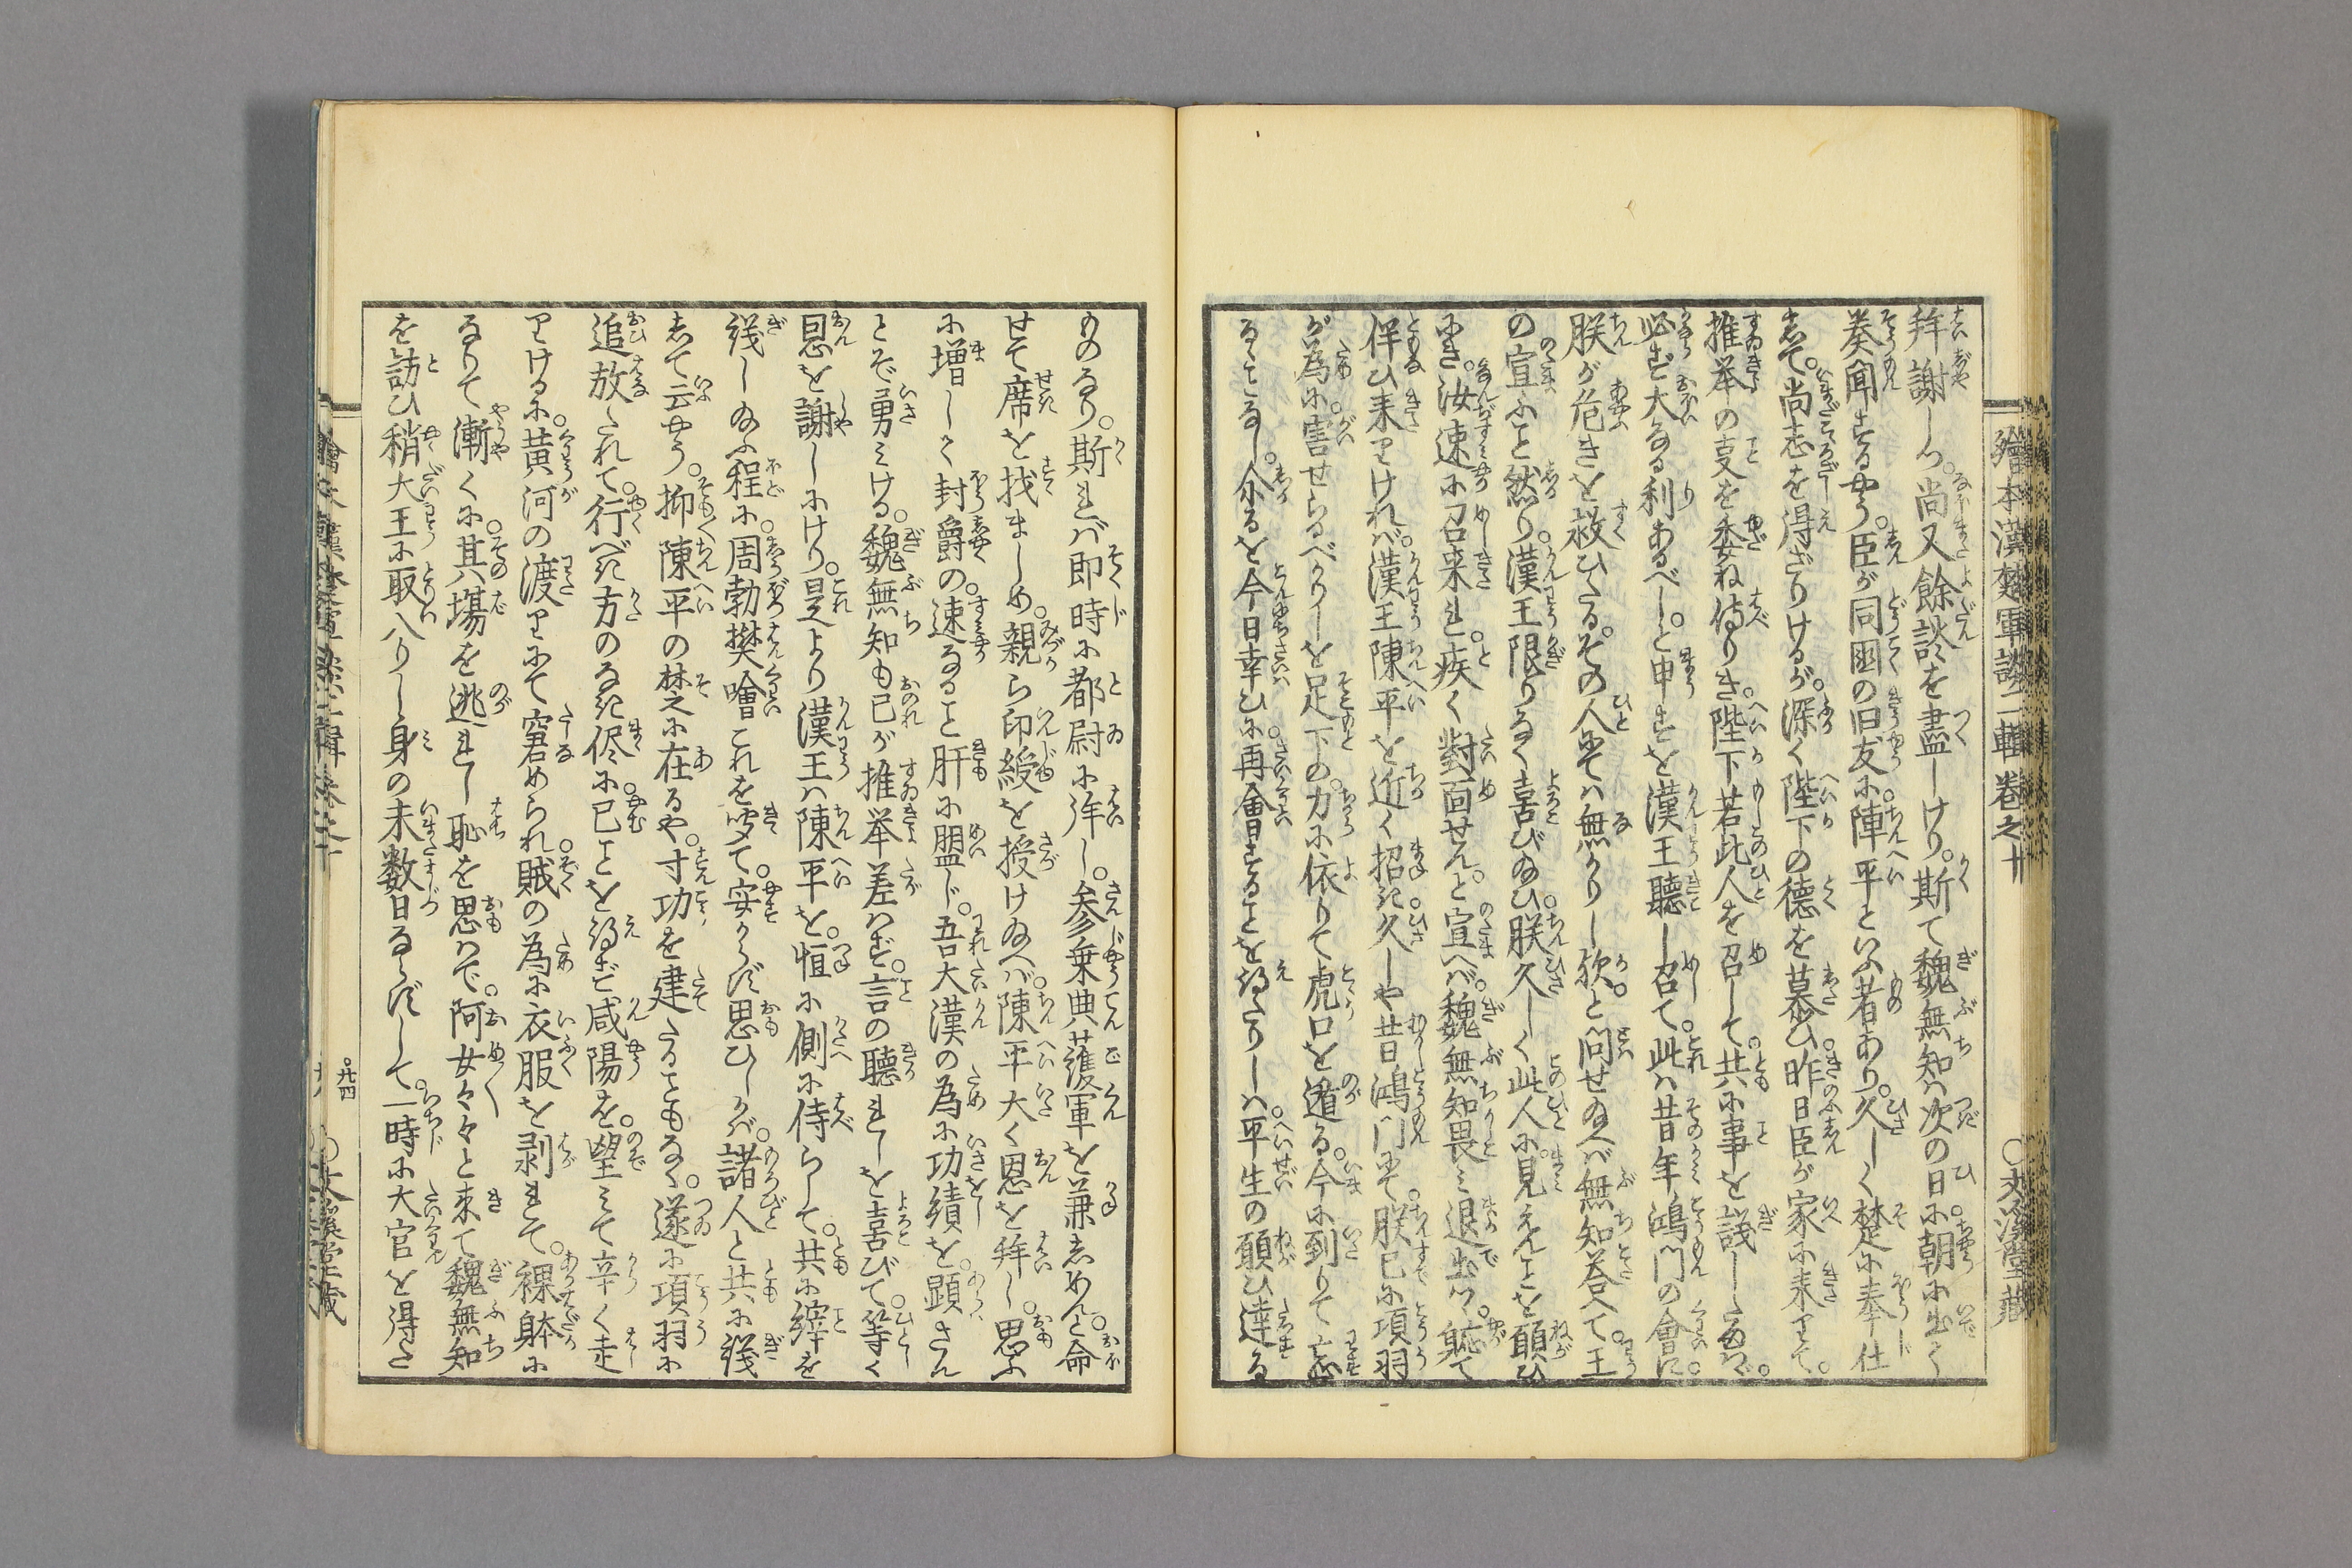 繪本漢楚軍談二輯卷之十
〇文溪堂藏
拝謝しつ。尚又餘談を盡しけり。斯て魏無知は次の日。朝に出て
奏聞するやう。臣が同国の旧友に。陳平といふ者あり。久しく楚に奉仕
して。尚志を得ざりけるが。深く陛下の徳を慕ひ。昨日臣が家に来りて。
推挙の㕝を委ね侍りき。陛下若此人を召して。共に事を議したまはゞ。
必ず大なる利あるべし。と申すを漢王聴し召て。此は昔年鴻門の會に。
朕が危きを救ひたる。その人にては無かりし欤。と問せ給へば無知荅へて。王
の宣ふこと然り。漢王限りなく喜び給ひ。朕久しく此人に。見えんことを願ひ
にき。汝速に召来れ。疾く對面せん。と宣へば。魏無知畏ミ退出つ。軈て
伴ひ来りければ。漢王陳平を近く招き。久しや昔鴻门にて。朕已に項羽
が為に。害せらるべかりしを足下の。力に依りて虎口を遁る。今に到りて忘
るゝことなし。尓るを今日幸ひに。再會することを得たりしは。平生の願ひ達る
ものなり。斯れば即時に都尉に拝し。参乗典護軍を兼しめんと命
せて席を找ましめ。親ら印綬を授け給へば。陳平大く恩を拝し。思ふ
に増しく封爵の。速なること肝に盟じ。吾大漢の為に功績を。顕さん
とぞ勇ミける。魏無知も己が推挙差はず。言の聴れしを喜びて。等く
恩を謝しにけり。是より漢王は陳平を。恒に側に侍らして。共に縡を
議し給ふ程に。周勃樊噲これを听て。安からず思ひしかば。諸人と共に議
して云やう。抑陳平の楚に在るや。寸功を建たることもなく。遂に項羽に
追放たれて。行べき方のなき侭に。已ことを得ず咸陽を。望ミて辛く走
りけるに。黄河の渡りにて窘められ。賊の為に衣服を剥れて。裸躰に
なりて漸くに。其塲を逃れし恥を思はで。阿女々々と来て魏無知
を訪ひ稍大王に取入りし身の未数日ならずして。一時に大官を得さ
廿四